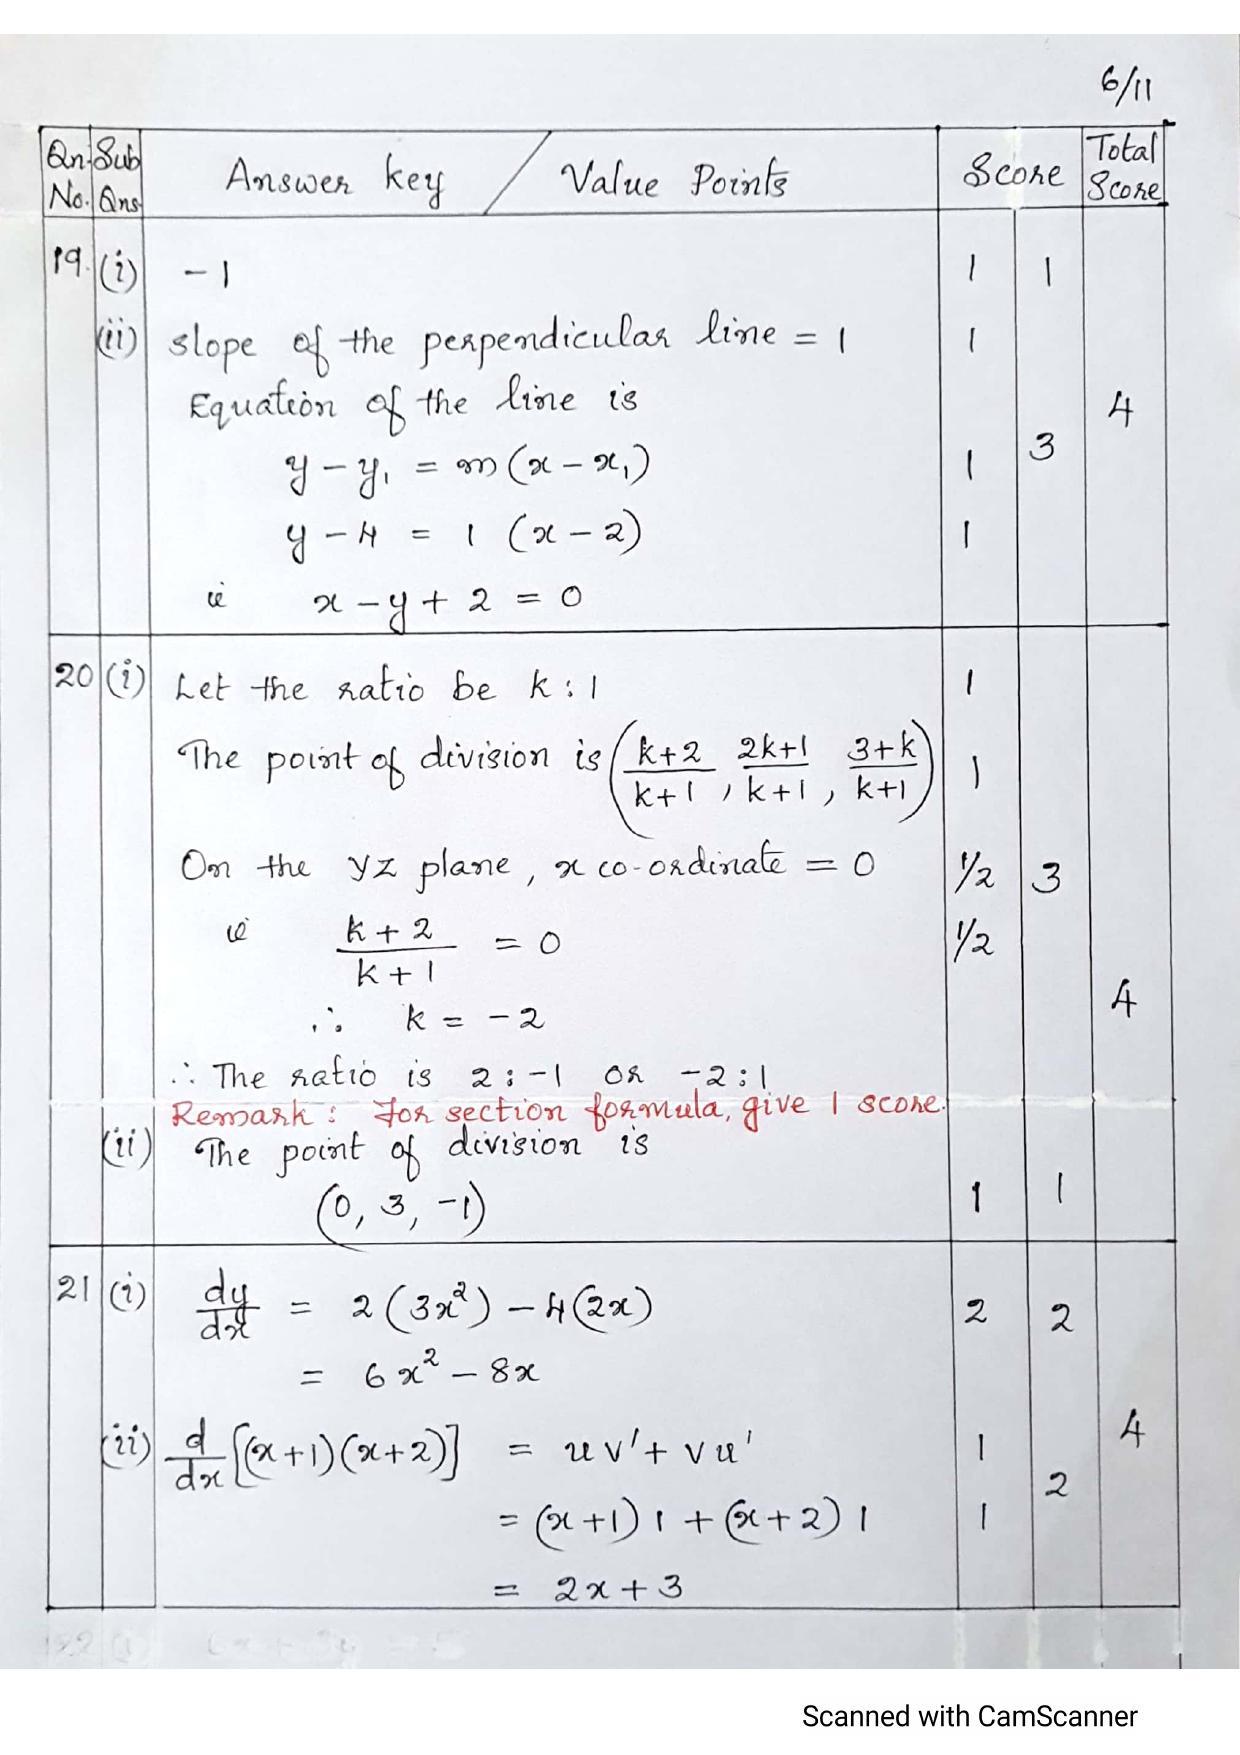 6/11
Qn. No. Sub Qns Answer key / Value Points Score Total Score
19. (i) -1 1 1
(ii) slope of the perpendicular line = 1 1
Equation of the line is 4
y - y₁ = m(x - x₁) 1 3
y - 4 = 1 (x - 2) 1
ie x - y + 2 = 0
20 (i) Let the ratio be k : 1 1
The point of division is ( k+2/k+1 , 2k+1/k+1 , 3+k/k+1 ) 1
On the YZ plane, x co-ordinate = 0 1/2 3
ie k + 2/k + 1 = 0 1/2
4
∴ k = -2
∴ The ratio is 2 : -1 or -2 : 1
Remark : For section formula, give 1 score.
(ii) The point of division is
(0, 3, -1) 1 1
21 (i) dy/dx = 2(3x²) - 4(2x) 2 2
= 6x² - 8x
(ii) d/dx [(x+1)(x+2)] = uv' + vu' 1 4
2
= (x+1) 1 + (x+2) 1 1
= 2x + 3
Scanned with CamScanner